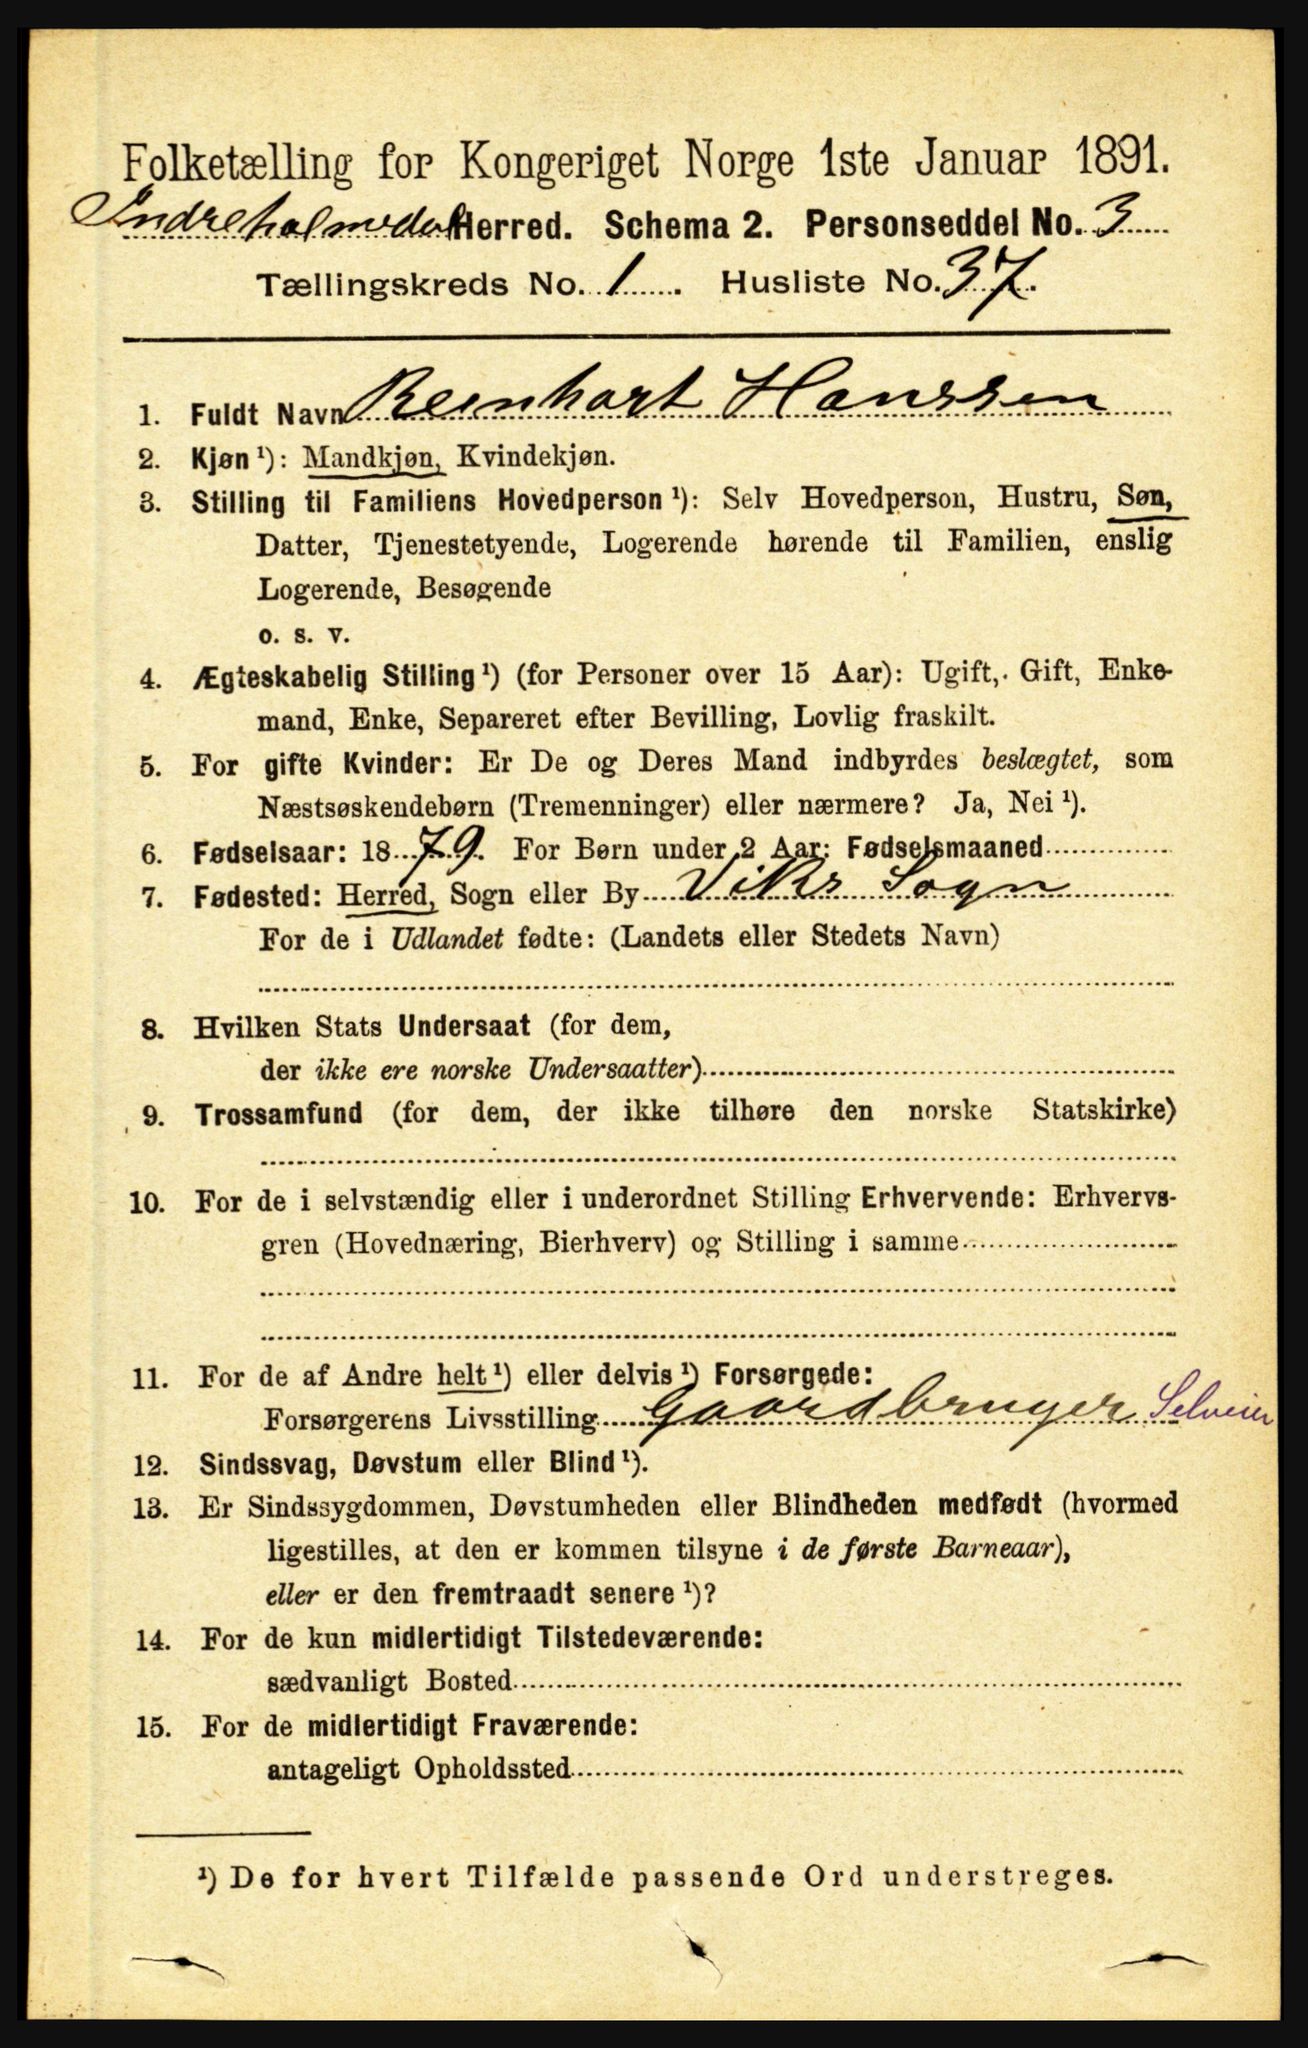 Folketælling for Kongeriget Norge 1ste Januar 1891.
Indreholmedal Herred. Schema 2. Personseddel No. 3
Tællingskreds No. 1. Husliste No. 37.
1. Fuldt Navn Reinhart Hanssen
2. Kjøn ¹): Mandkjøn, Kvindekjøn.
3. Stilling til Familiens Hovedperson ¹): Selv Hovedperson, Hustru, Søn,
Datter, Tjenestetyende, Logerende hørende til Familien, enslig
Logerende, Besøgende
o. s. v.
4. Ægteskabelig Stilling ¹) (for Personer over 15 Aar): Ugift, Gift, Enke-
mand, Enke, Separeret efter Bevilling, Lovlig fraskilt.
5. For gifte Kvinder: Er De og Deres Mand indbyrdes beslægtet, som
Næstsøskendebørn (Tremenninger) eller nærmere? Ja, Nei ¹).
6. Fødselsaar: 1879. For Børn under 2 Aar: Fødselsmaaned
7. Fødested: Herred, Sogn eller By Viks Sogn
For de i Udlandet fødte: (Landets eller Stedets Navn)
8. Hvilken Stats Undersaat (for dem,
der ikke ere norske Undersaatter)
9. Trossamfund (for dem, der ikke tilhøre den norske Statskirke)
10. For de i selvstændig eller i underordnet Stilling Erhvervende: Erhvervs-
gren (Hovednæring, Bierhverv) og Stilling i samme
11. For de af Andre helt ¹) eller delvis ¹) Forsørgede:
Forsørgerens Livsstilling Gaardbruger Selveier
12. Sindssvag, Døvstum eller Blind ¹).
13. Er Sindssygdommen, Døvstumheden eller Blindheden medfødt (hvormed
ligestilles, at den er kommen tilsyne i de første Barneaar),
eller er den fremtraadt senere ¹)?
14. For de kun midlertidigt Tilstedeværende:
sædvanligt Bosted
15. For de midlertidigt Fraværende:
antageligt Opholdssted
¹) De for hvert Tilfælde passende Ord understreges.